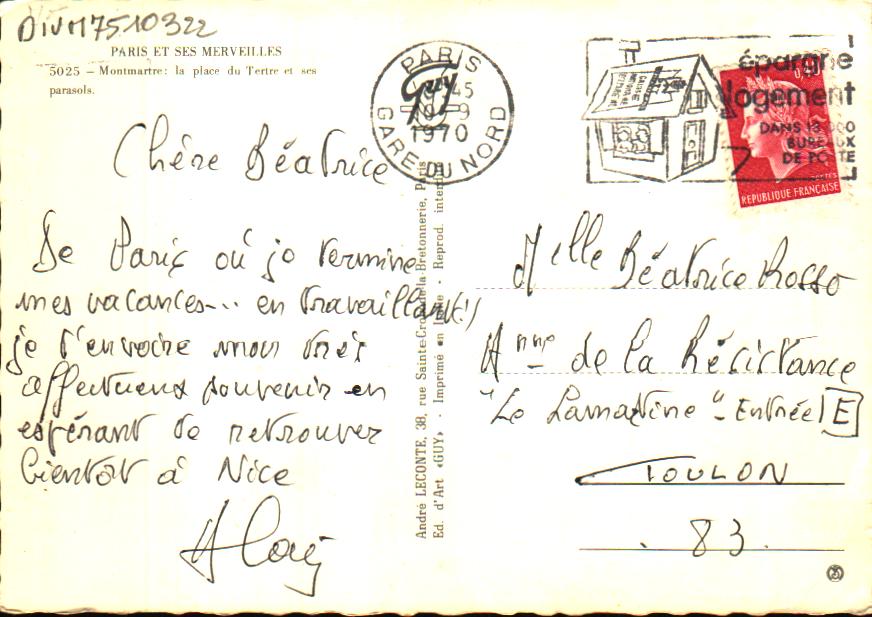 DIVM7510322
PARIS ET SES MERVEILLES
5025 — Montmartre: la place du Tertre et ses
parasols.
PARIS
45
9
1970
GARE DU NORD
épargne
logement
DANS 18 000
BUREAUX
DE POSTE
0,40
POSTES
REPUBLIQUE FRANÇAISE
Chère Béatrice
De Paris où je termine
mes vacances... en travaillant!)
je t'envoie mon très
affectueux souvenir en
espérant te retrouver
bientôt à Nice
Alain
André LECONTE, 38, rue Sainte-Croix-de-la-Bretonnerie, Paris
Ed. d'Art «GUY» · Imprimé en · Reprod. interdite
Mlle Béatrice Rosso
Anne de la Résistance
"Le Lamartine" - Entrée E
TOULON
83.